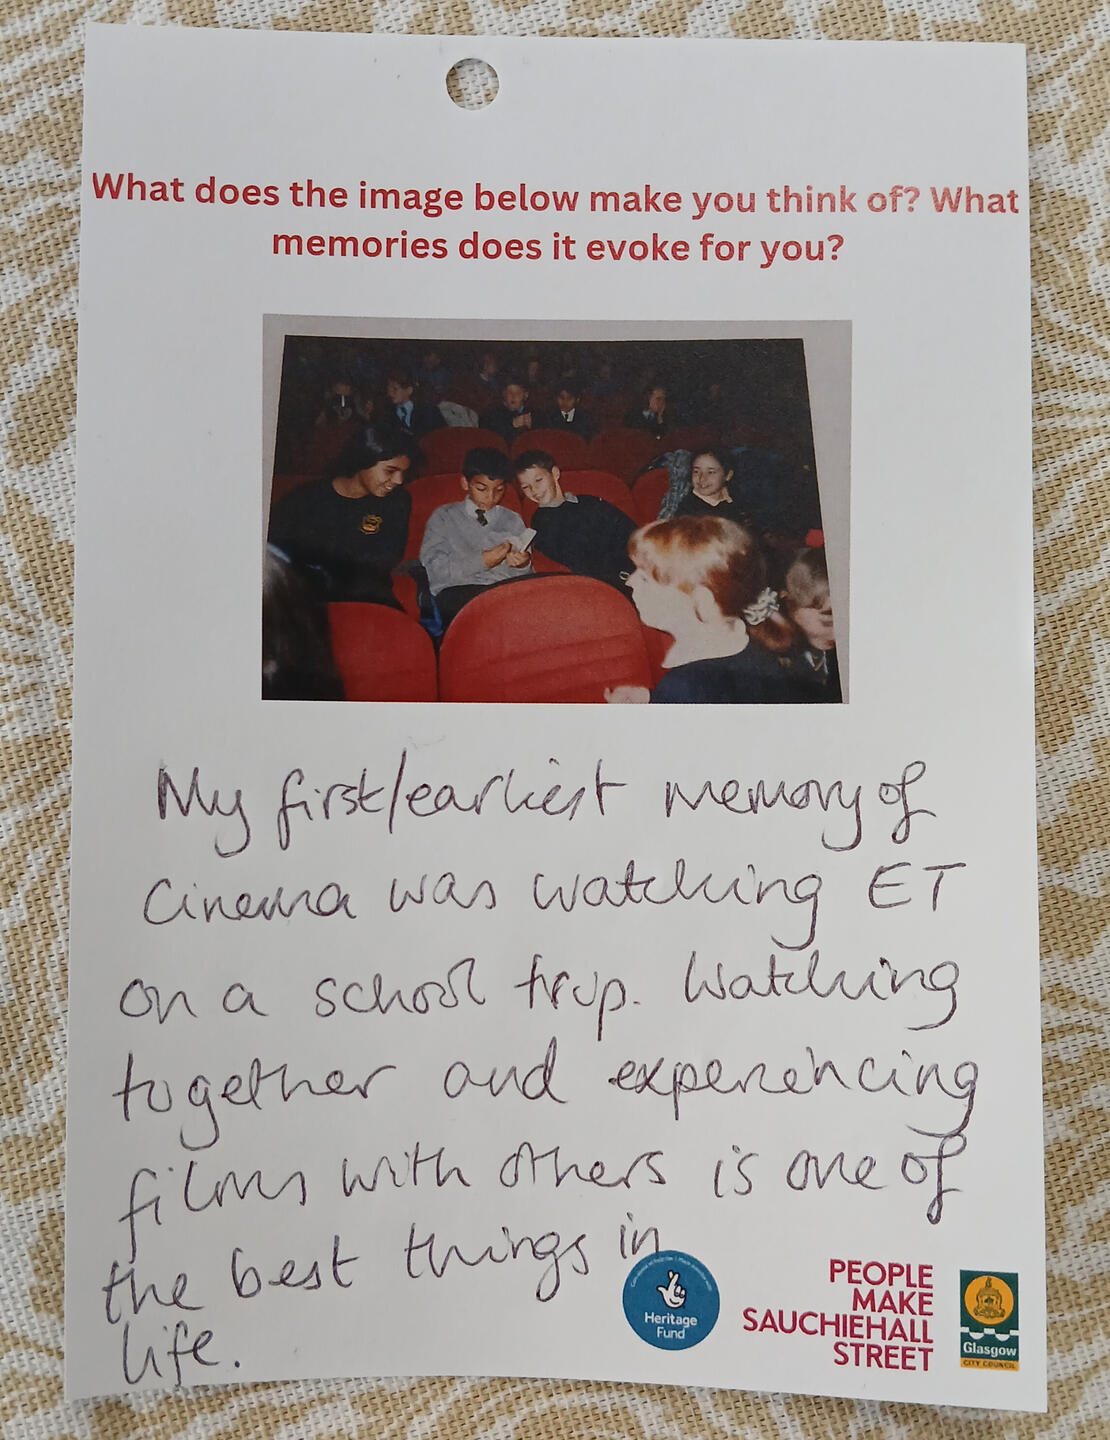 What does the image below make you think of? What
memories does it evoke for you?
My first/earliest memory of
Cinema was watching ET
on a school trip. Watching
together and experiencing
films with others is one of
the best things in
life.
Heritage
Fund
PEOPLE
MAKE
SAUCHIEHALL
STREET
Glasgow
CITY COUNCIL